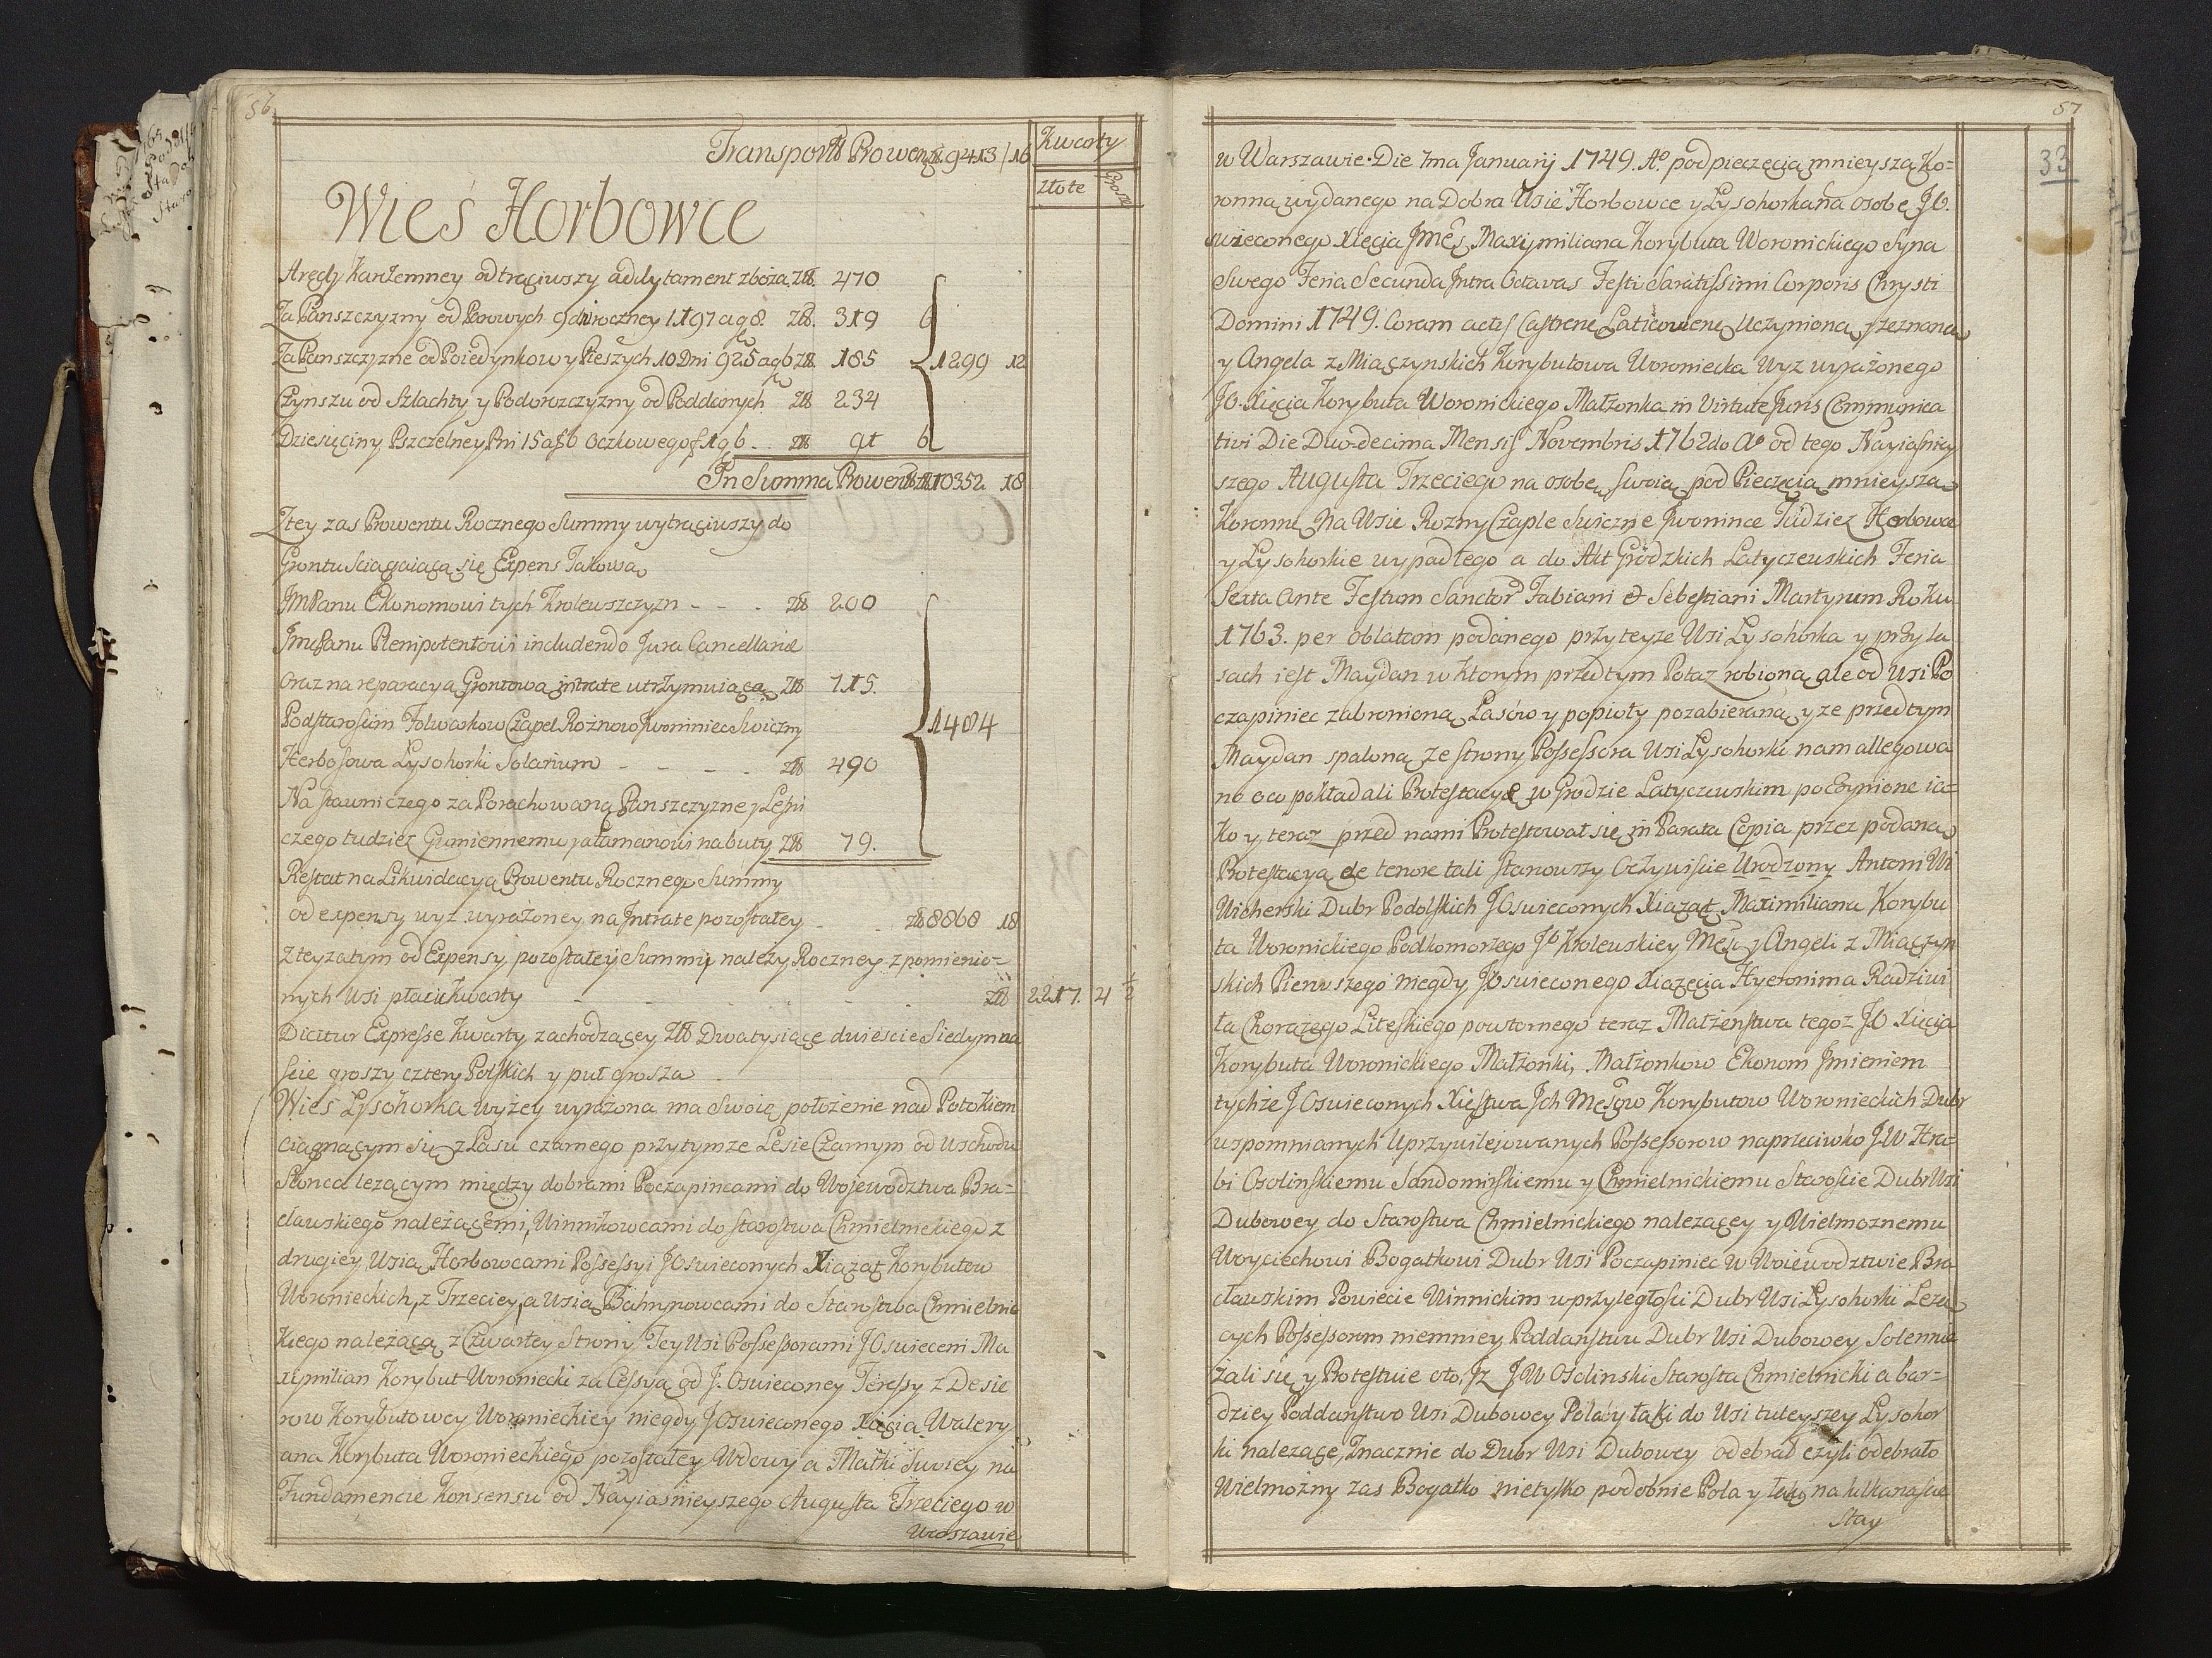 56
Transport Prowen. Zł. 9413/16
Kwarty
Złote Grosze
Wieś Horbowce
Arędy Karżemney odtrąciwszy addytament zboża Zł. 470
Za Panszczyzny od Parowych 9dniroczney 1197 a g 8. Zł. 319 6
Za Panszczyzne od Poiedynkow y Pieszych 10 Dni 925 a g 6 Zł. 185
1299 12
Czynszu od Szlachty y Podorozczyzny od Poddanych Zł 234
Dziesięciny Pszczelney Pni 15 a f 6 Oczkowego f 1 g 6 Zł 91 6
In Summa Prowent. Zł 10352 18
Ztey zas Prowentu Rocznego Summy wytrąciwszy do
Grontu Sciągaiącą się Expens Takową
JmPanu Ekonomowi tych Krolewszczyzn - - - Zł 200
JmPanu Plenipotentowi includendo Jura Cancellariæ
oraz na reparacyą Grontową intrate utrzymuiącą Zł 715.
Podstarościm Folwarkow Czapel Rożnow Jwonniec Swiczny
1484
Herbosowa Lysohorki Solarium - - - - Zł 490
Na stawniczego za Porachowaną Panszczyzne y Leśni
czego tudziez Gumiennemu y atamanowi nabuty Zł 79.
Restat na Likwidacyą Prowentu Rocznego Summy
od expensy wyz wyrażoney na Jntrate pozostałey - Zł 8868 18
Z teyzatym od Expensy pozostałey Summy należy Roczney z pomienio-
nych Wsi płacić kwarty - - - - Zł 2217. 4 ½
Dicitur Expresse Kwarty zachodzącey Zł Dwatysiące dwieście Siedymna
ście groszy cztery Polskich y puł grosza
Wieś Lysohorka wyżey wyrażona ma Swoie położenie nad Potokiem
ciągnącym się z Lasu czarnego przytymze Lesie Czarnym od Wschodu
Słonca lezącym między dobrami Poczapincami do Wojewodztwa Bra-
cławskiego należącemi, Winnikowcami do starostwa Chmielnickiego z
drugiey, Wsią Horbowcami Possessyi JOswieconych Xiążąt Korybutow
Woronieckich, z Trzeciey, a Wsią Bahrynowcami do Starostwa Chmielnic
kiego należącą, z Czwartey Strony Tey Wsi Possessorami JOswieceni Ma
ximilian Korybut Woroniecki za Cessyą od J. Oswieconey Teressy z Desie
row Korybutowey Woronieckiey niegdy JOswieconego Xięcia Walery
ana Korybuta Woronieckiego pozostałey Wdowy a Matki swoiey na
Fundamencie Konsensu od Nayiaśnieyszego Augusta Trzeciego w
Warszawie
57
33
w Warszawie. Die 7ma Januarij 1749. Aº. pod pieczęcią mnieyszą Ko-
ronną wydanego na Dobra Wsie Horbowce y Lysohorka na osobę JO.
swieconego Xięcia JMći Maxymiliana Korybuta Woronickiego Syna
Swego Feria Secunda Intra Octavas Festi Saratissimi Corporis Chrysti
Domini 1749. Coram actis Castren: Laticovien: Uczyniona y zeznana
y Angela z Miączynskich Korybutowa Woroniecka Wyz wyrażonego
JO. Xięcia Korybuta Woronickiego Małżonka in Virtute Juris Communica
tivi Die Duo-decima Mensis Novembris 1762do Aº od tego Nayiaśniey
szego Augusta Trzeciego na osobę swoią pod Pieczęcią mnieyszą
Koronną Na Wsie Rozny Czaple Swiczne Jwonince Tudziez Herbowce
y Lysohorkie wypadłego a do Akt Grodzkich Latyczewskich Feria
Sexta Ante Festum Sanctor Fabiani & Sebestiani Martyrum Roku
1763. per oblatam podanego przy teyze Wsi Lysohorka y przy La
sach iest Maydan w ktorym przedtym Potaz robioną ale od Wsi Po
czapiniec zabroniono, Lasow y popioły pozabierano y ze przedtym
Maydan spalono, ze strony Possessora Wsi Lysohorki nam allegowa
no oco pokładali Protestacye w Grodzie Latyczewskim poczynione ia-
ko y teraz przed nami Protestował się in Parata Copia przez podaną
Protestacyą de tenore tali Stanowszy Oczywiście Urodzony Antoni Wi
Wicherski Dubr Podolskich JOswieconych Xiążąt Maximiliana Korybu
ta Woronickiego Podkomorzego JO Krolewskiey Mści y Angeli z Miączyn
skich Pierwszego niegdy JOswieconego Xiążęcia Hyeronima Radziwi
ła Chorążego Liteskiego powtornego teraz Małżenstwa tegoz JO Xięcia
Korybuta Woronickiego Małżonki, Małżonkow Ekonom Jmieniem
tychże JOswieconych Xięstwa Jch Mściow Korybutow Woronieckich Dubr
wspomnianych Uprzywilejowanych Possessorow naprzeciwko JW Hra-
bi Osolinskiemu Sandomirskiemu y Chmielnickiemu Staroście Dubr Wsi
Dubowey do Starostwa Chmielnickiego nalezącey y Wielmoznemu
Woyciechowi Bogatkowi Dubr Wsi Poczapiniec w Woiewodztwie Bra
cławskim Powiecie Winnickim w przyległości Dubr Wsi Lysohorki Leżą
cych Possessorom niemniey Poddanstwu Dubr Wsi Dubowey Solenniè
żali się y Protestuie oto, Jz JW Osolinski Starosta Chmielnicki a bar-
dziey Poddanstwo Wsi Dubowey Pola y łąki do Wsi tuteyszey Lysohor
ki nalezące, Znacznie do Dubr Wsi Dubowey odebrał czyli odebrało
Wielmożny zas Bogatko nietylko podobnie Pola y łąki na kilkanaście
Stay